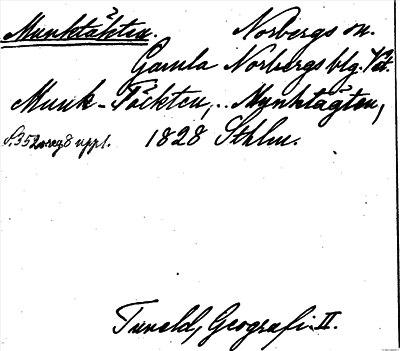 Munktåhten. Norbergs sn.
Gamla Norbergs blg. Vst.
Munk-Täckten, .. Munktågten,
S. 352 o reg 8 uppl. 1828 Sthlm.
Tuneld, Geografi. II.